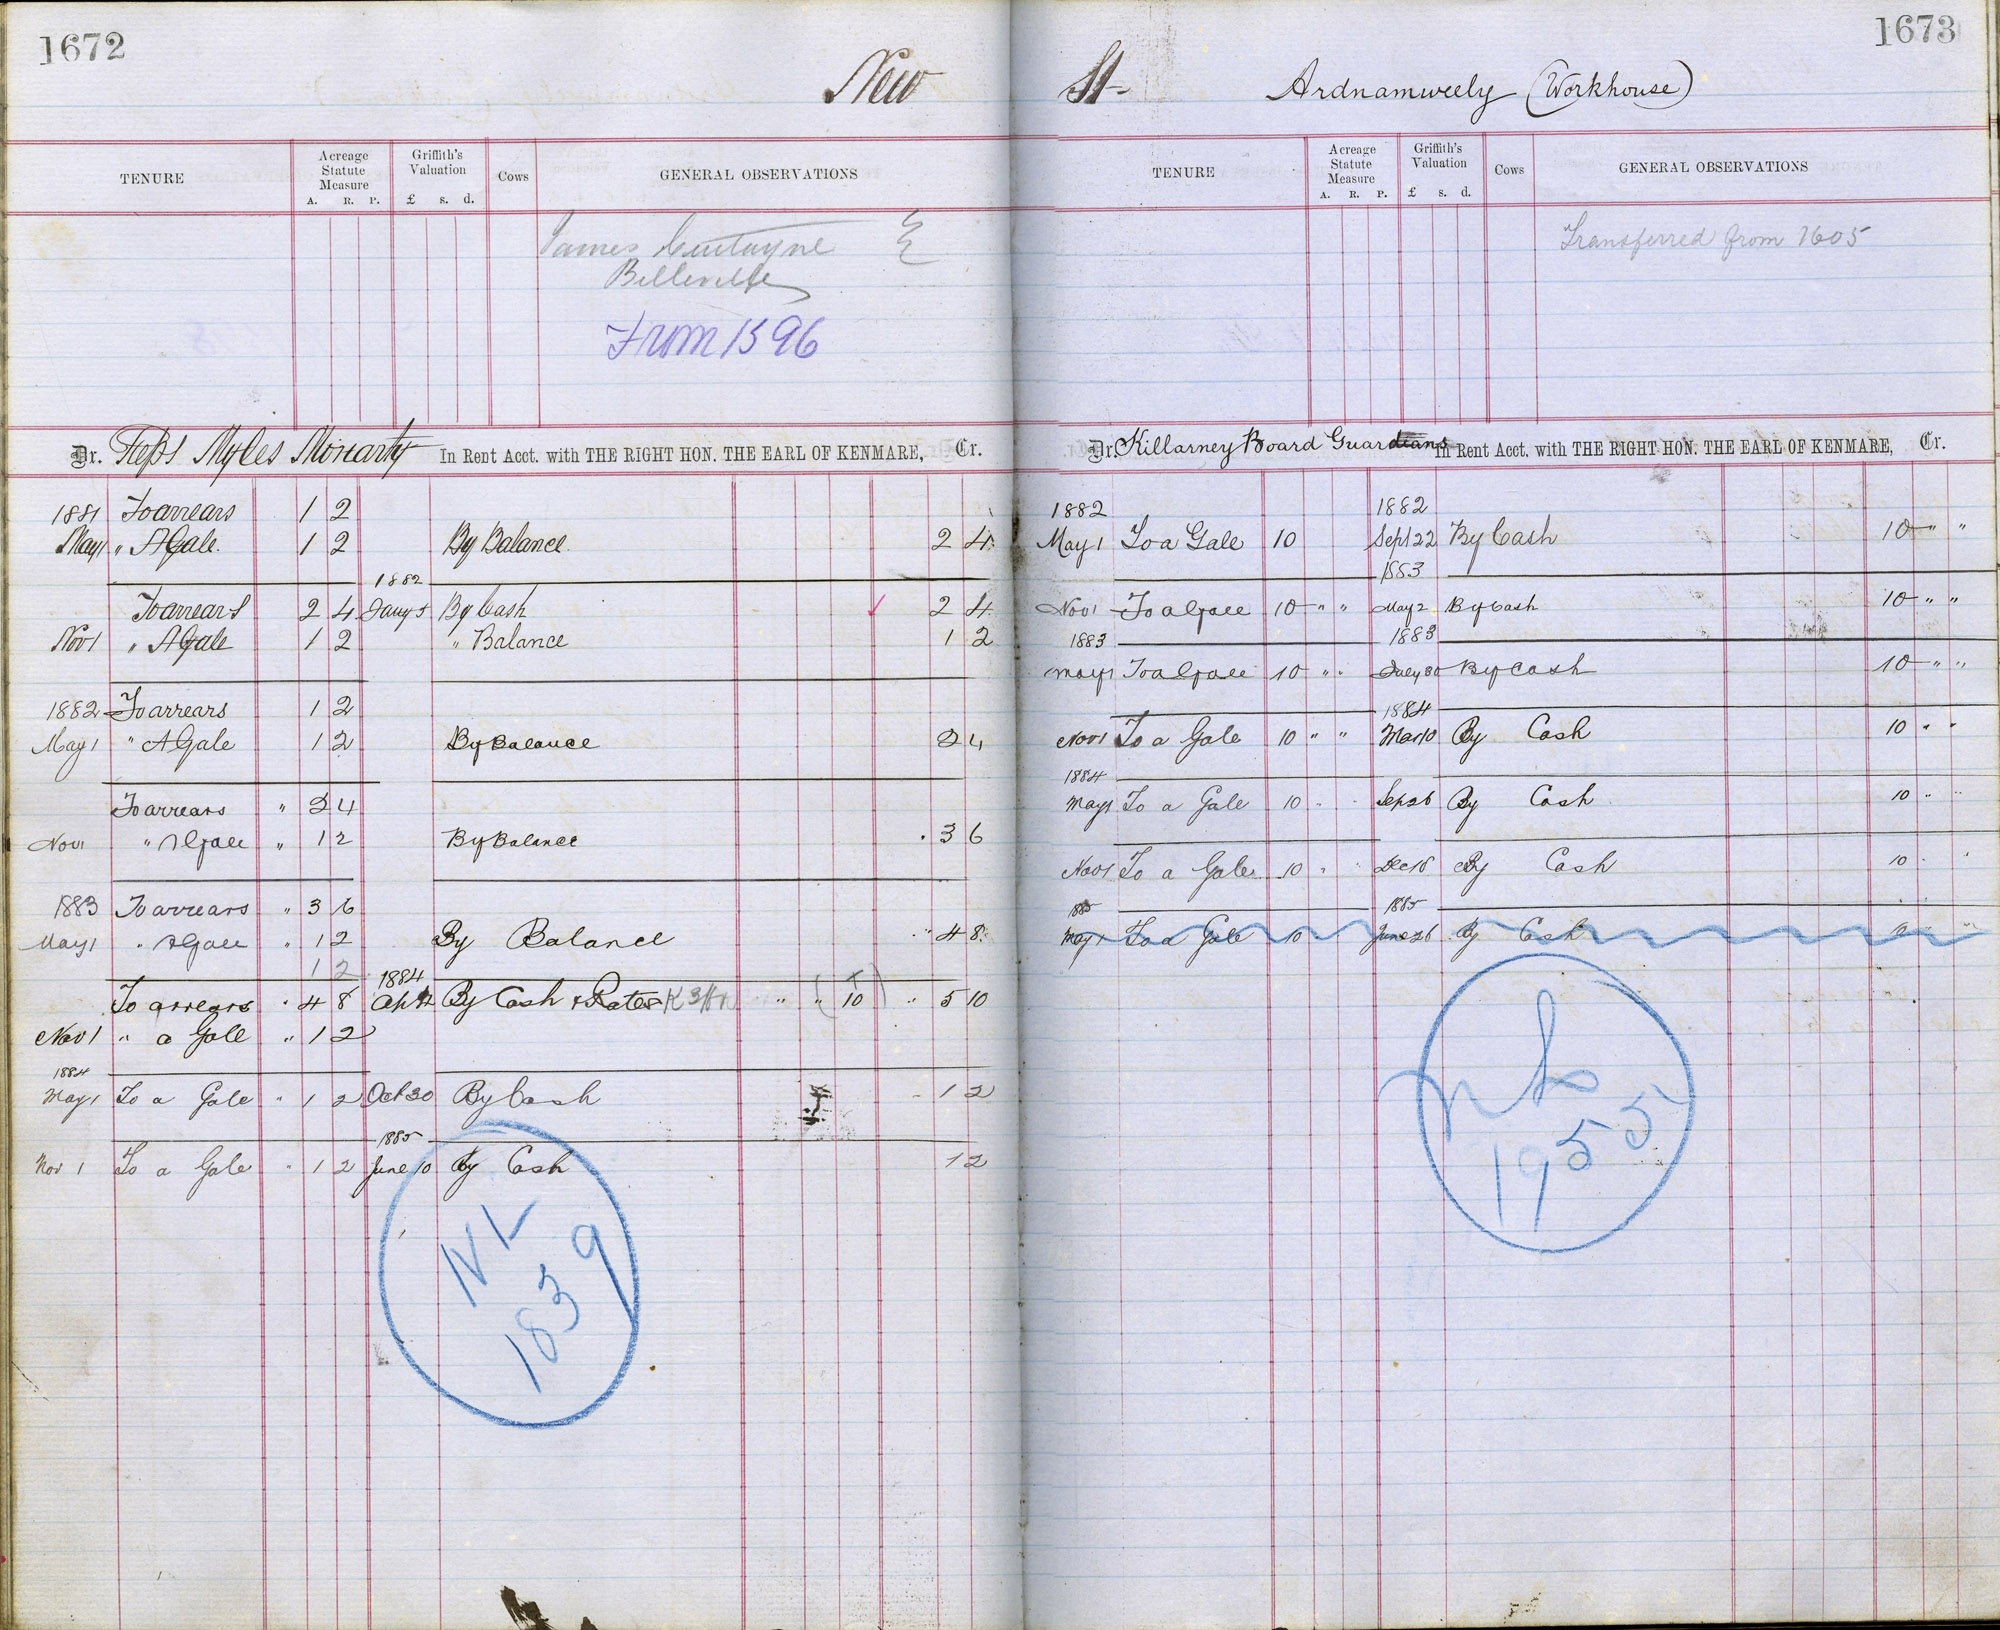 1672
New
TENURE
Acreage Statute Measure
A. R. P.
Griffith's Valuation
£ s. d.
Cows
GENERAL OBSERVATIONS
James
Belleville
From 1596
Dr. Myles Moriarty In Rent Acct. with THE RIGHT HON. THE EARL OF KENMARE, Cr.
1881 To arrears 1 2
May 1 " A Gale. 1 2 By Balance. 2 4
1882
To arrears 2 4 Jany 5 By Cash 2 4
Nov 1 " A Gale 1 2 " Balance 1 2
1882 To arrears 1 2
May 1 " A Gale 1 2 By Balance 2 4
To arrears " 2 4
Nov 1 " A Gale " 1 2 By Balance 3 6
1883 To arrears " 3 6
May 1 " A Gale " 1 2 By Balance " 4 8
1 2
1884
To arrears " 4 8 Apl By Cash & Rates " " (10) " 5 10
Nov 1 " a Gale " 1 2
1884
May 1 To a Gale " 1 2 Oct 30 By Cash 1 2
1885
Nov 1 To a Gale " 1 2 June 10 By Cash 1 2
NL
1839
1673
St
Ardnamweely (Workhouse)
TENURE
Acreage Statute Measure
A. R. P.
Griffith's Valuation
£ s. d.
Cows
GENERAL OBSERVATIONS
Transferred from 1605
Dr. Killarney Board Guardians In Rent Acct. with THE RIGHT HON. THE EARL OF KENMARE, Cr.
1882 1882
May 1 To a Gale 10 Sept 22 By Cash 10 " "
1883
Nov 1 To a Gale 10 " " May 2 By Cash 10 " "
1883 1883
May 1 To a Gale 10 " " July 30 By Cash 10 " "
1884
Nov 1 To a Gale 10 " " Mar 10 By Cash 10 " "
1884
May 1 To a Gale 10 " " Sep 26 By Cash 10 " "
Nov 1 To a Gale 10 " " Dec 18 By Cash 10 " "
1885 1885
May 1 To a Gale 10 June 26 By Cash 10 " "
NL
1955